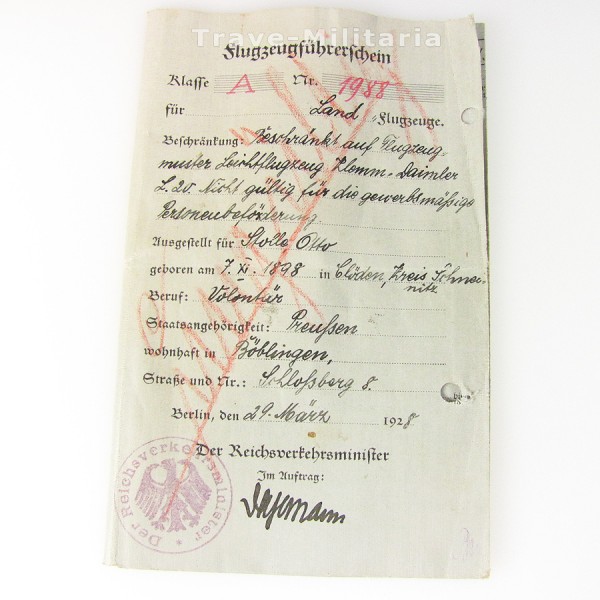 Trave-Militaria
Flugzeugführerschein
Klasse A Nr. 1988
für Land-Flugzeuge.
Beschränkung: Beschränkt auf Flugzeug-
muster Leichtflugzeug Klemm-Daimler
L. 20. Nicht gültig für die gewerbsmäßige
Personenbeförderung.
Ausgestellt für Stolle Otto
geboren am 7. XI. 1898 in Clöden, Kreis Schwei-
nitz
Beruf: Volontär
Staatsangehörigkeit: Preussen
wohnhaft in Böblingen,
Straße und Nr.: Schloßberg 8.
Berlin, den 29. März 1928
Der Reichsverkehrsminister
Im Auftrag:
Der Reichsverkehrsminister